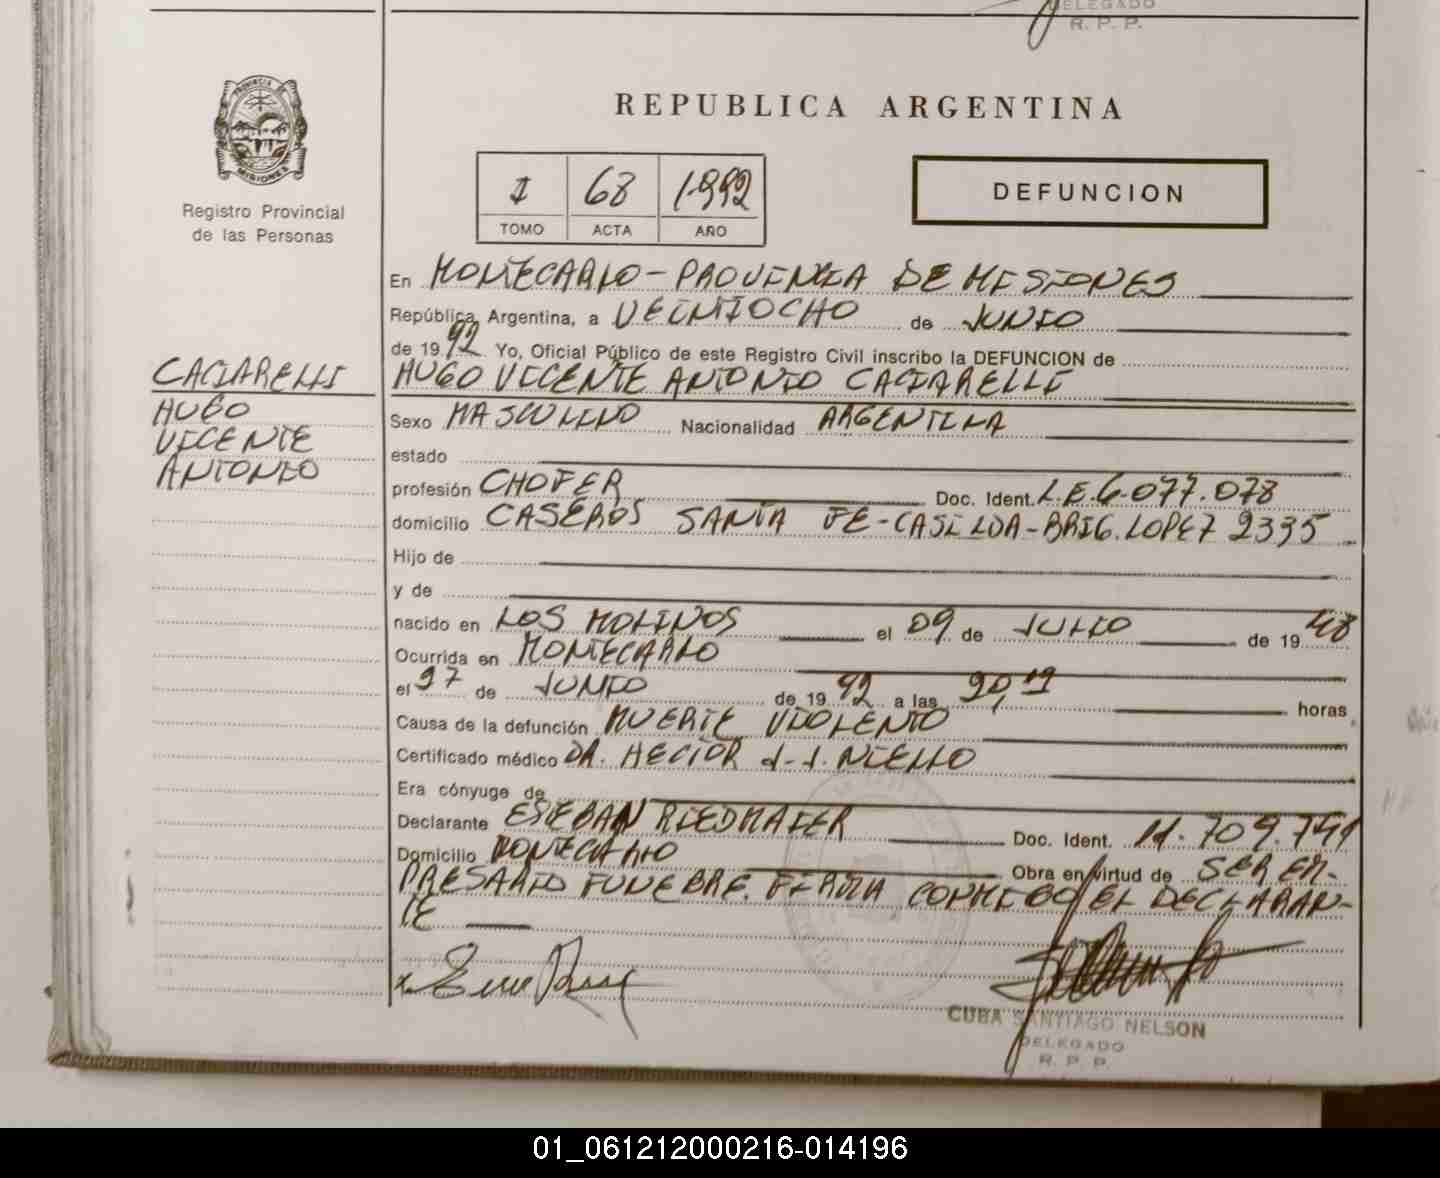 DELEGADO
R. P. P.
PROVINCIA DE
MISIONES
Registro Provincial
de las Personas
REPUBLICA ARGENTINA
I 68 1.992
TOMO ACTA AÑO
DEFUNCION
En MONTECARLO - PROVINCIA DE MISIONES
República Argentina, a VEINTIOCHO de JUNIO
de 1992 Yo, Oficial Público de este Registro Civil inscribo la DEFUNCION de
CACIARELLI
HUGO VICENTE ANTONIO CACIARELLI
HUGO
VICENTE
ANTONIO
Sexo MASCULINO Nacionalidad ARGENTINA
estado
profesión CHOFER Doc. Ident. L.E. 6.077.078
domicilio CASEROS SANTA FE - CASILDA - BRIG. LOPEZ 2335
Hijo de
y de
nacido en LOS MOLINOS el 09 de JULIO de 1948
Ocurrida en MONTECARLO
el 27 de JUNIO de 1992 a las 20,19 horas
Causa de la defunción MUERTE VIOLENTO
Certificado médico DR. HECTOR J. J. NIELLO
Era cónyuge de
Declarante ESTEBAN RIEDMAIER Doc. Ident. 11.709.751
Domicilio MONTECARLO Obra en virtud de SER EM-
PRESARIO FUNEBRE. FIRMA CONMIGO EL DECLARAN-
TE
CUBA SANTIAGO NELSON
DELEGADO
R. P. P.
01_061212000216-014196